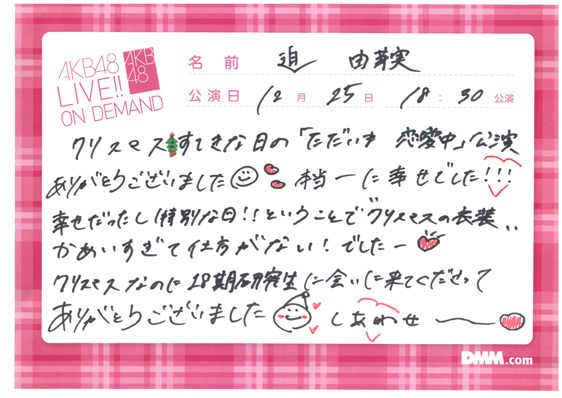 AKB48
LIVE!!
ON DEMAND
AKB
48
名 前 迫 由芽実
公演日 12月 25日 18:30 公演
クリスマスすてきな日の「ただいま 恋愛中」公演
ありがとうございました 本当ーに幸せでした!!!
幸せだったし特別な日!!ということでクリスマスの衣装、、
かわいすぎて仕方がない!でしたー
クリスマスなのに18期研究生に会いに来てくださって
ありがとうございました しあわせー
DMM.com